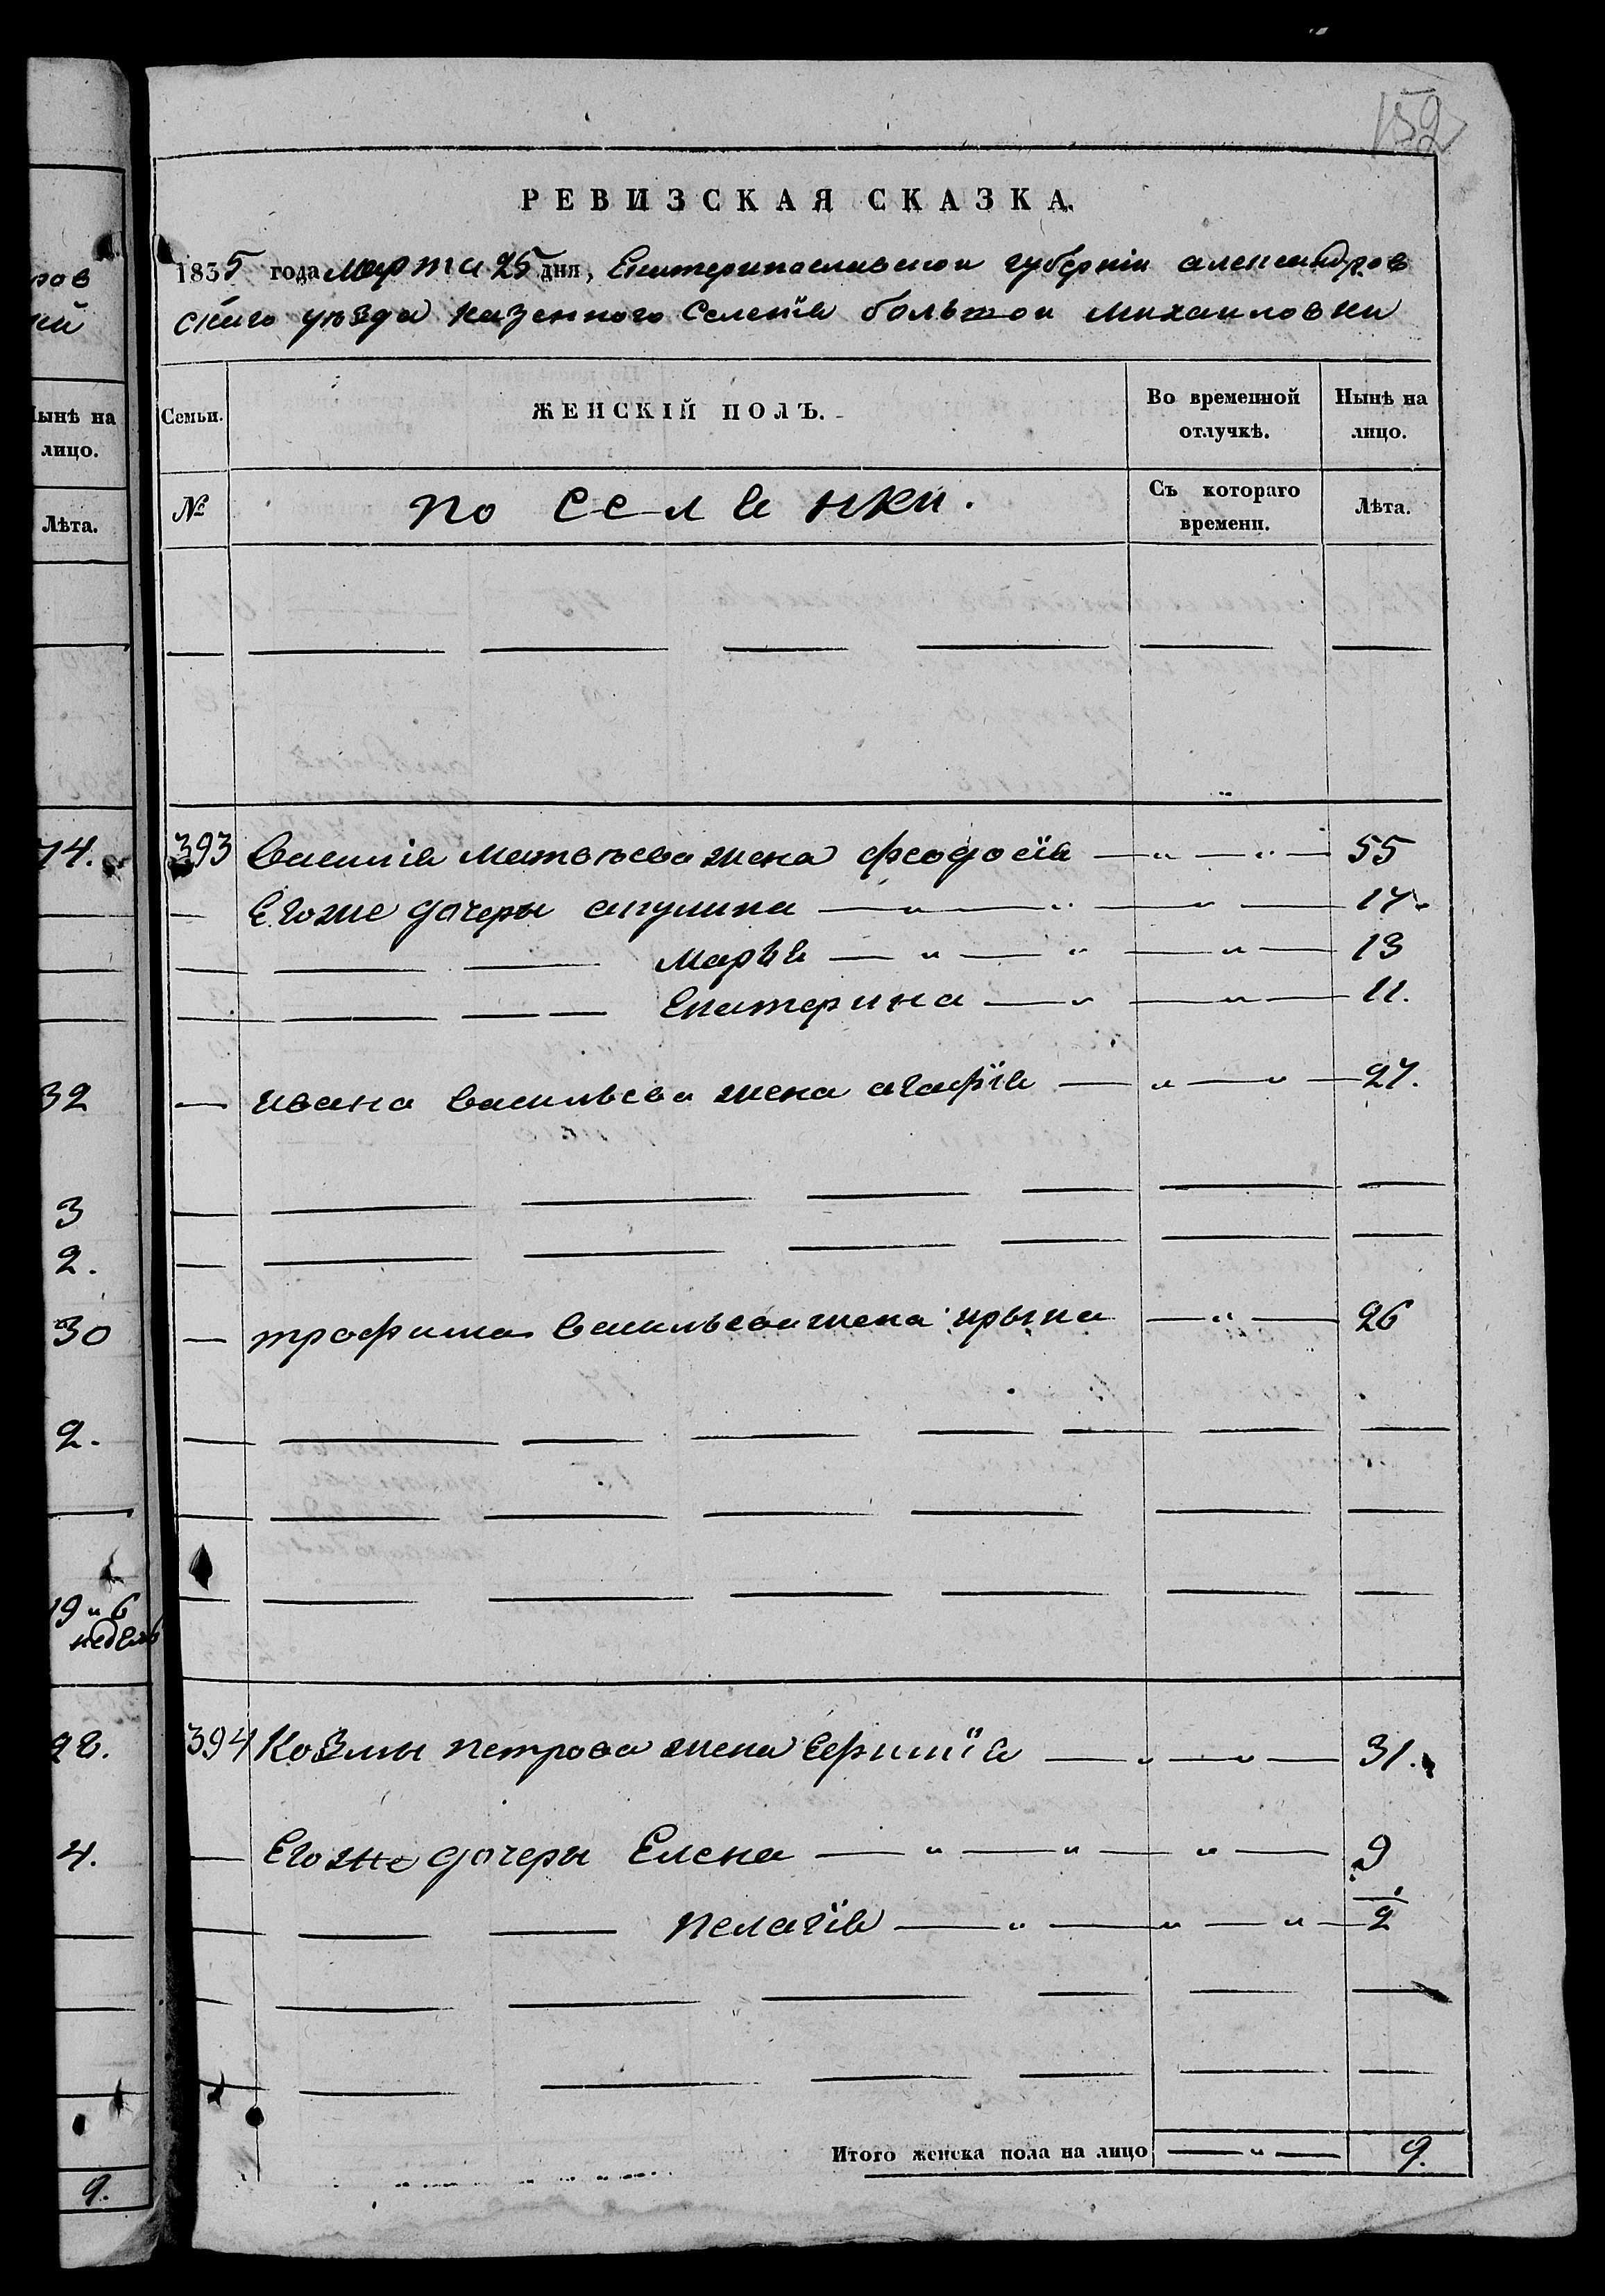 152
РЕВИЗСКАЯ СКАЗКА.
1835 года марта 25 дня, Екатеринославской губерніи александров
скаго уѣзда казенного Селенія большой михайловки
Семьи. ЖЕНСКІЙ ПОЛЪ. Во временной отлучкѣ. Нынѣ на лицо.
№ поселянки. Съ котораго времени. Лѣта.
393 Василія матвѣева жена феодосія — " — " — 55
— Егоже дочеры акулина — " — " — " — 17.
— — — Марья — " — " — " — 13
— — — — Екатерина — " — " — 11.
— ивана васильева жена агафія — " — " — 27.
— трофима васильева жена ирына — " — 26
394 Козмы петрова жена — " — " — 31.
— Егоже дочеры Елена — " — " — " — 9
— — — пелагія — " — " — " — 2
Итого женска пола на лицо — " — 9.
ров
кій
Нынѣ на
лицо.
Лѣта.
74.
32
3
2.
30
2.
19 и 6
недель
28.
4.
9.